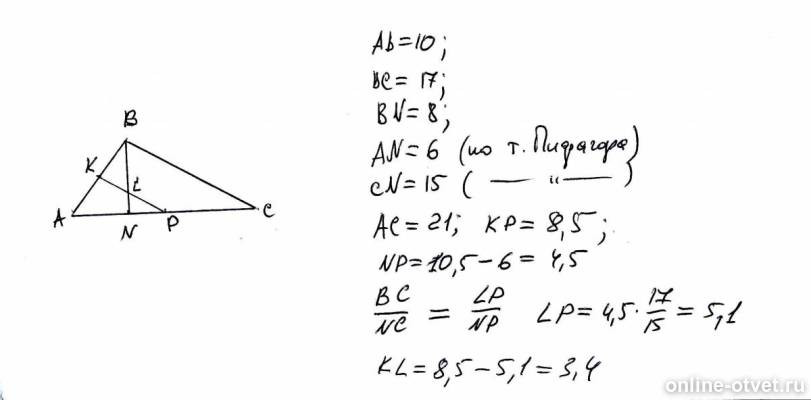 B
K
L
A
N
P
C
AB=10;
BC=17;
BN=8;
AN=6 (по т. Пифагора)
CN=15 ( — " — )
AC=21; KP=8,5;
NP=10,5-6=4,5
BC/NC = LP/NP LP=4,5·17/15=5,1
KL=8,5-5,1=3,4
online-otvet.ru